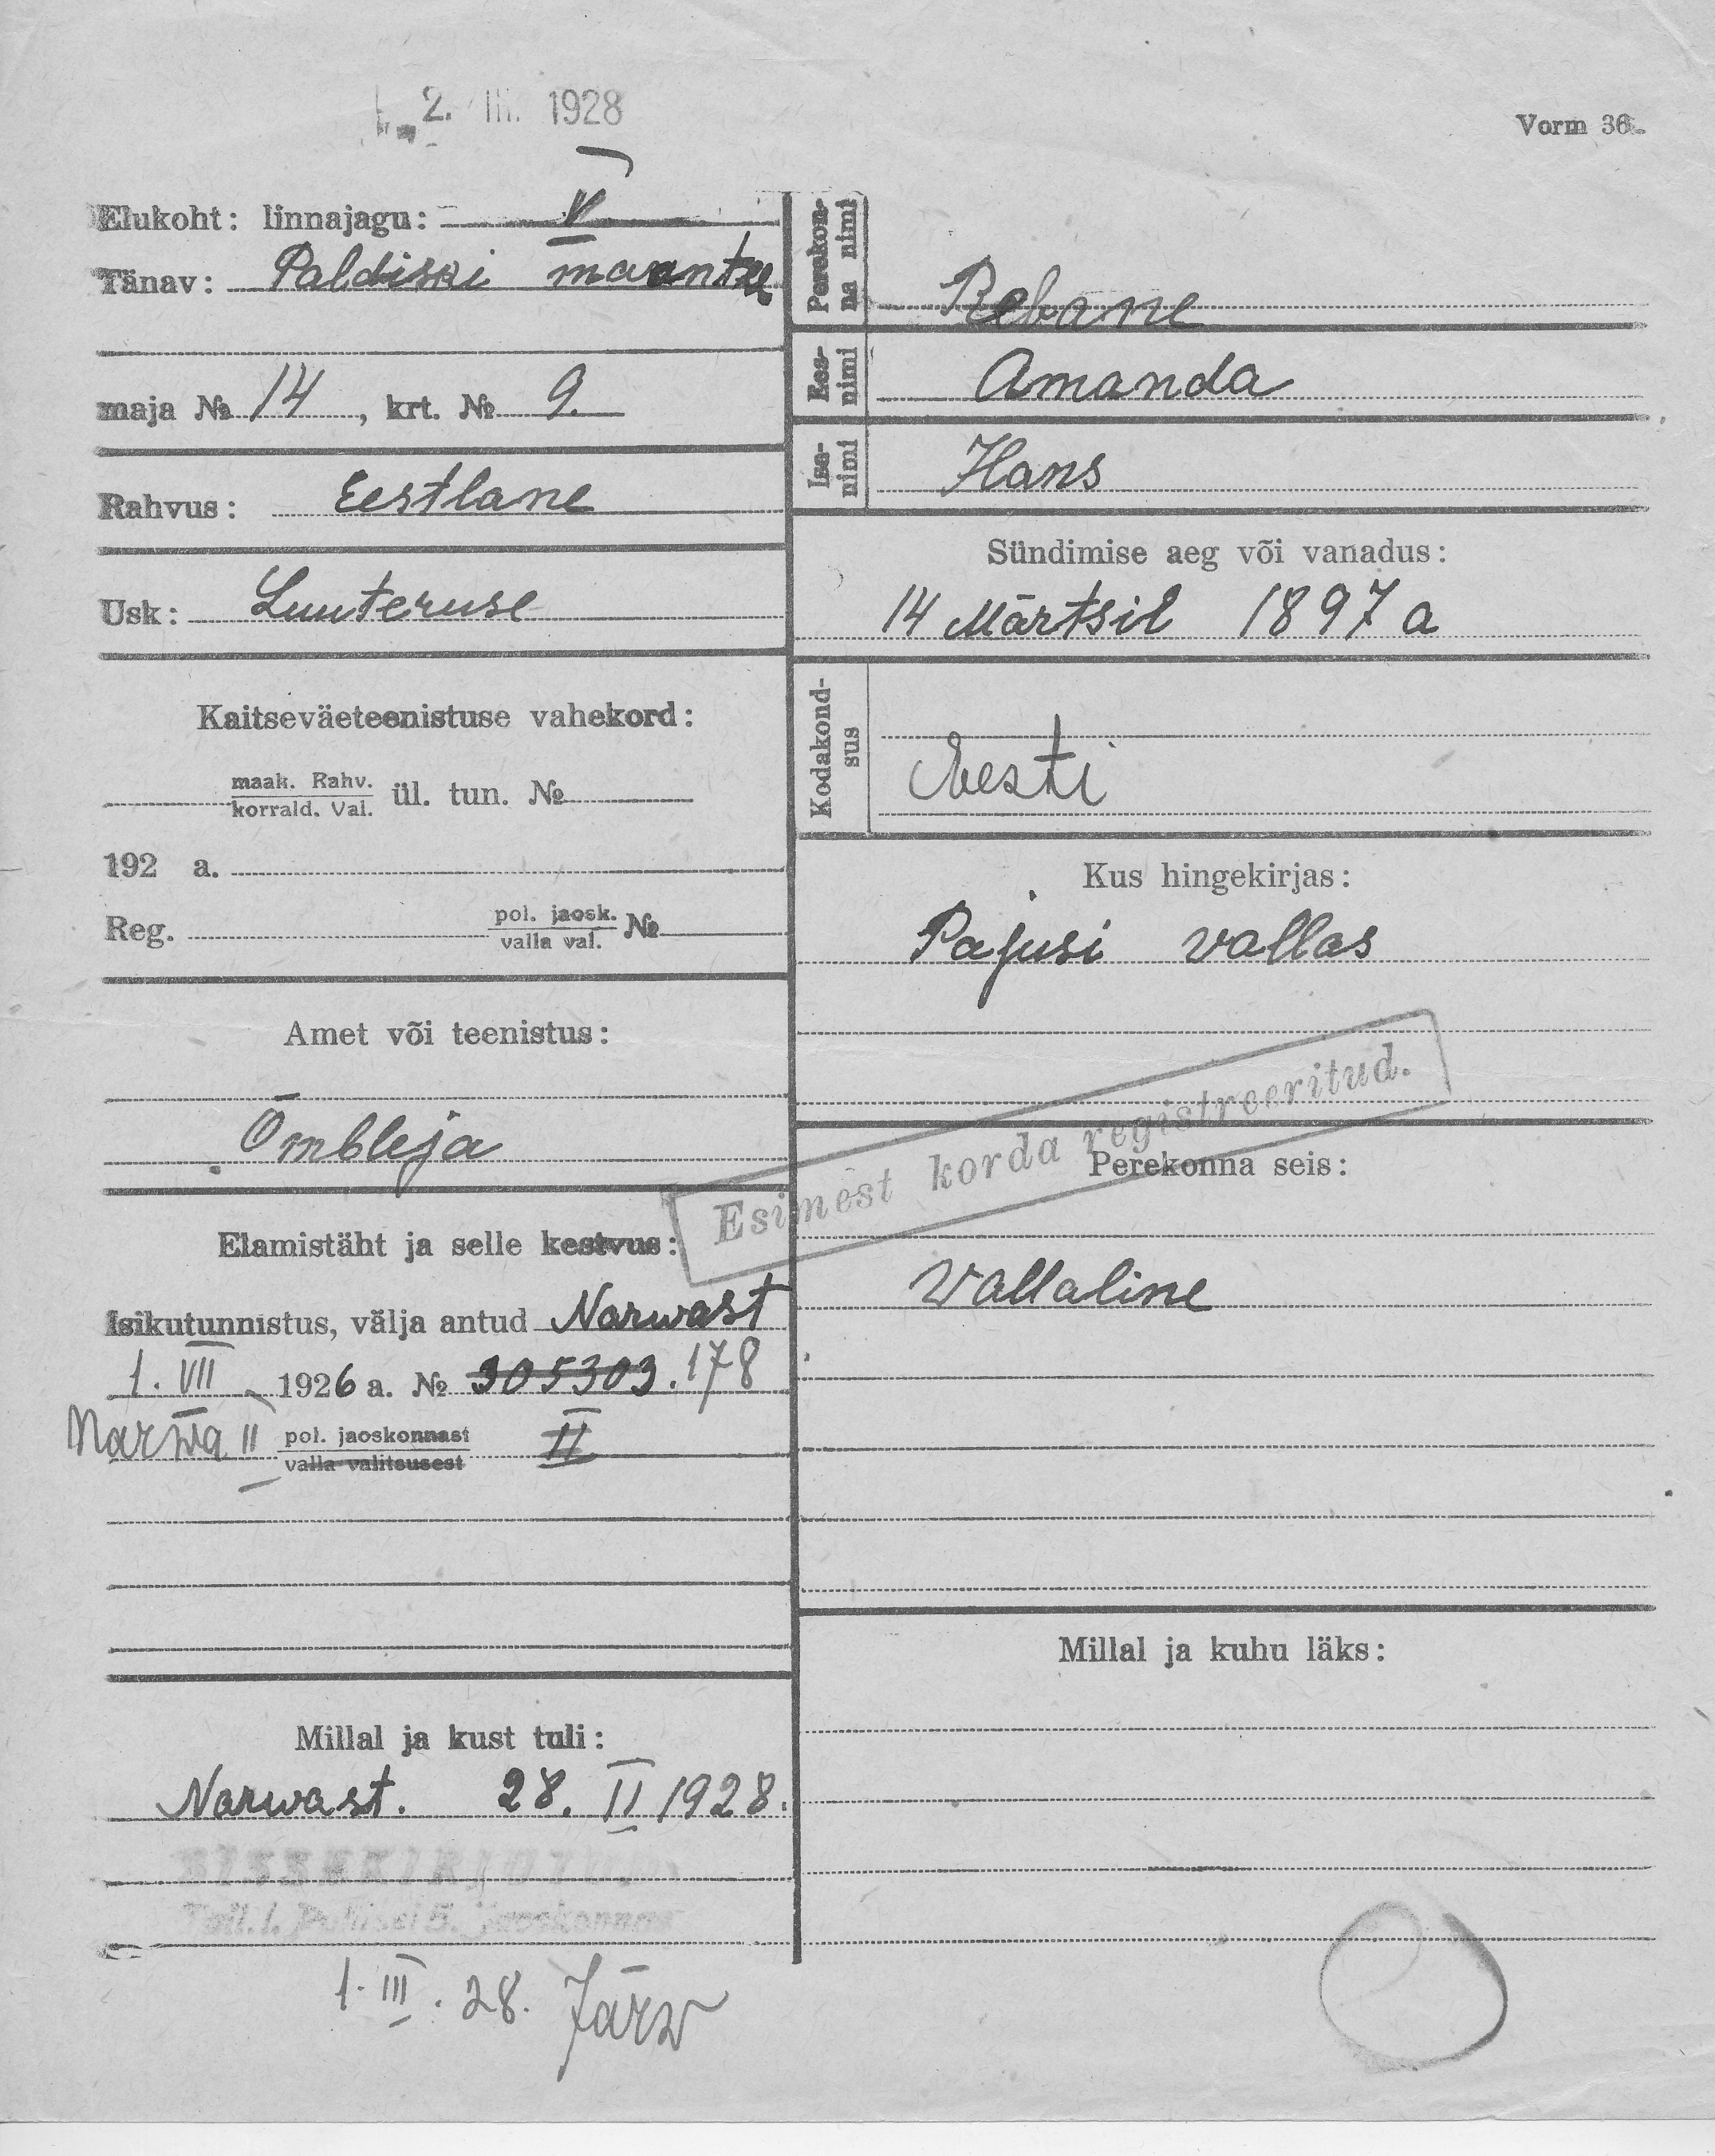 2. III. 1928
Vorm 36.
Elukoht: linnajagu: V
Tänav: Paldiski maantee
maja № 14, krt. № 9.
Rahvus: Eestlane
Usk: Luuteruse
Kaitseväeteenistuse vahekord:
maak. Rahv.
korrald. Val. ül. tun. №
192 a.
Reg. pol. jaosk. №
valla val.
Amet või teenistus:
Õmbleja
Elamistäht ja selle kestvus:
Isikutunnistus, välja antud Narwast
1. VII 1926 a. № 305303. 178
Narwa II pol. jaoskonnast II
valla valitsusest
Millal ja kust tuli:
Narwast. 28. II 1928.
SISSEKIRJUTUD
Tall. l. Politsei 5. jaoskonnas
1. III. 28. Järw
Perekonna nimi
Rebane
Eesnimi
Amanda
Isanimi
Hans
Sündimise aeg või vanadus:
14 Märtsil 1897 a
Kodakondsus
Eesti
Kus hingekirjas:
Pajusi vallas
Esimest korda registreeritud.
Perekonna seis:
Vallaline
Millal ja kuhu läks: